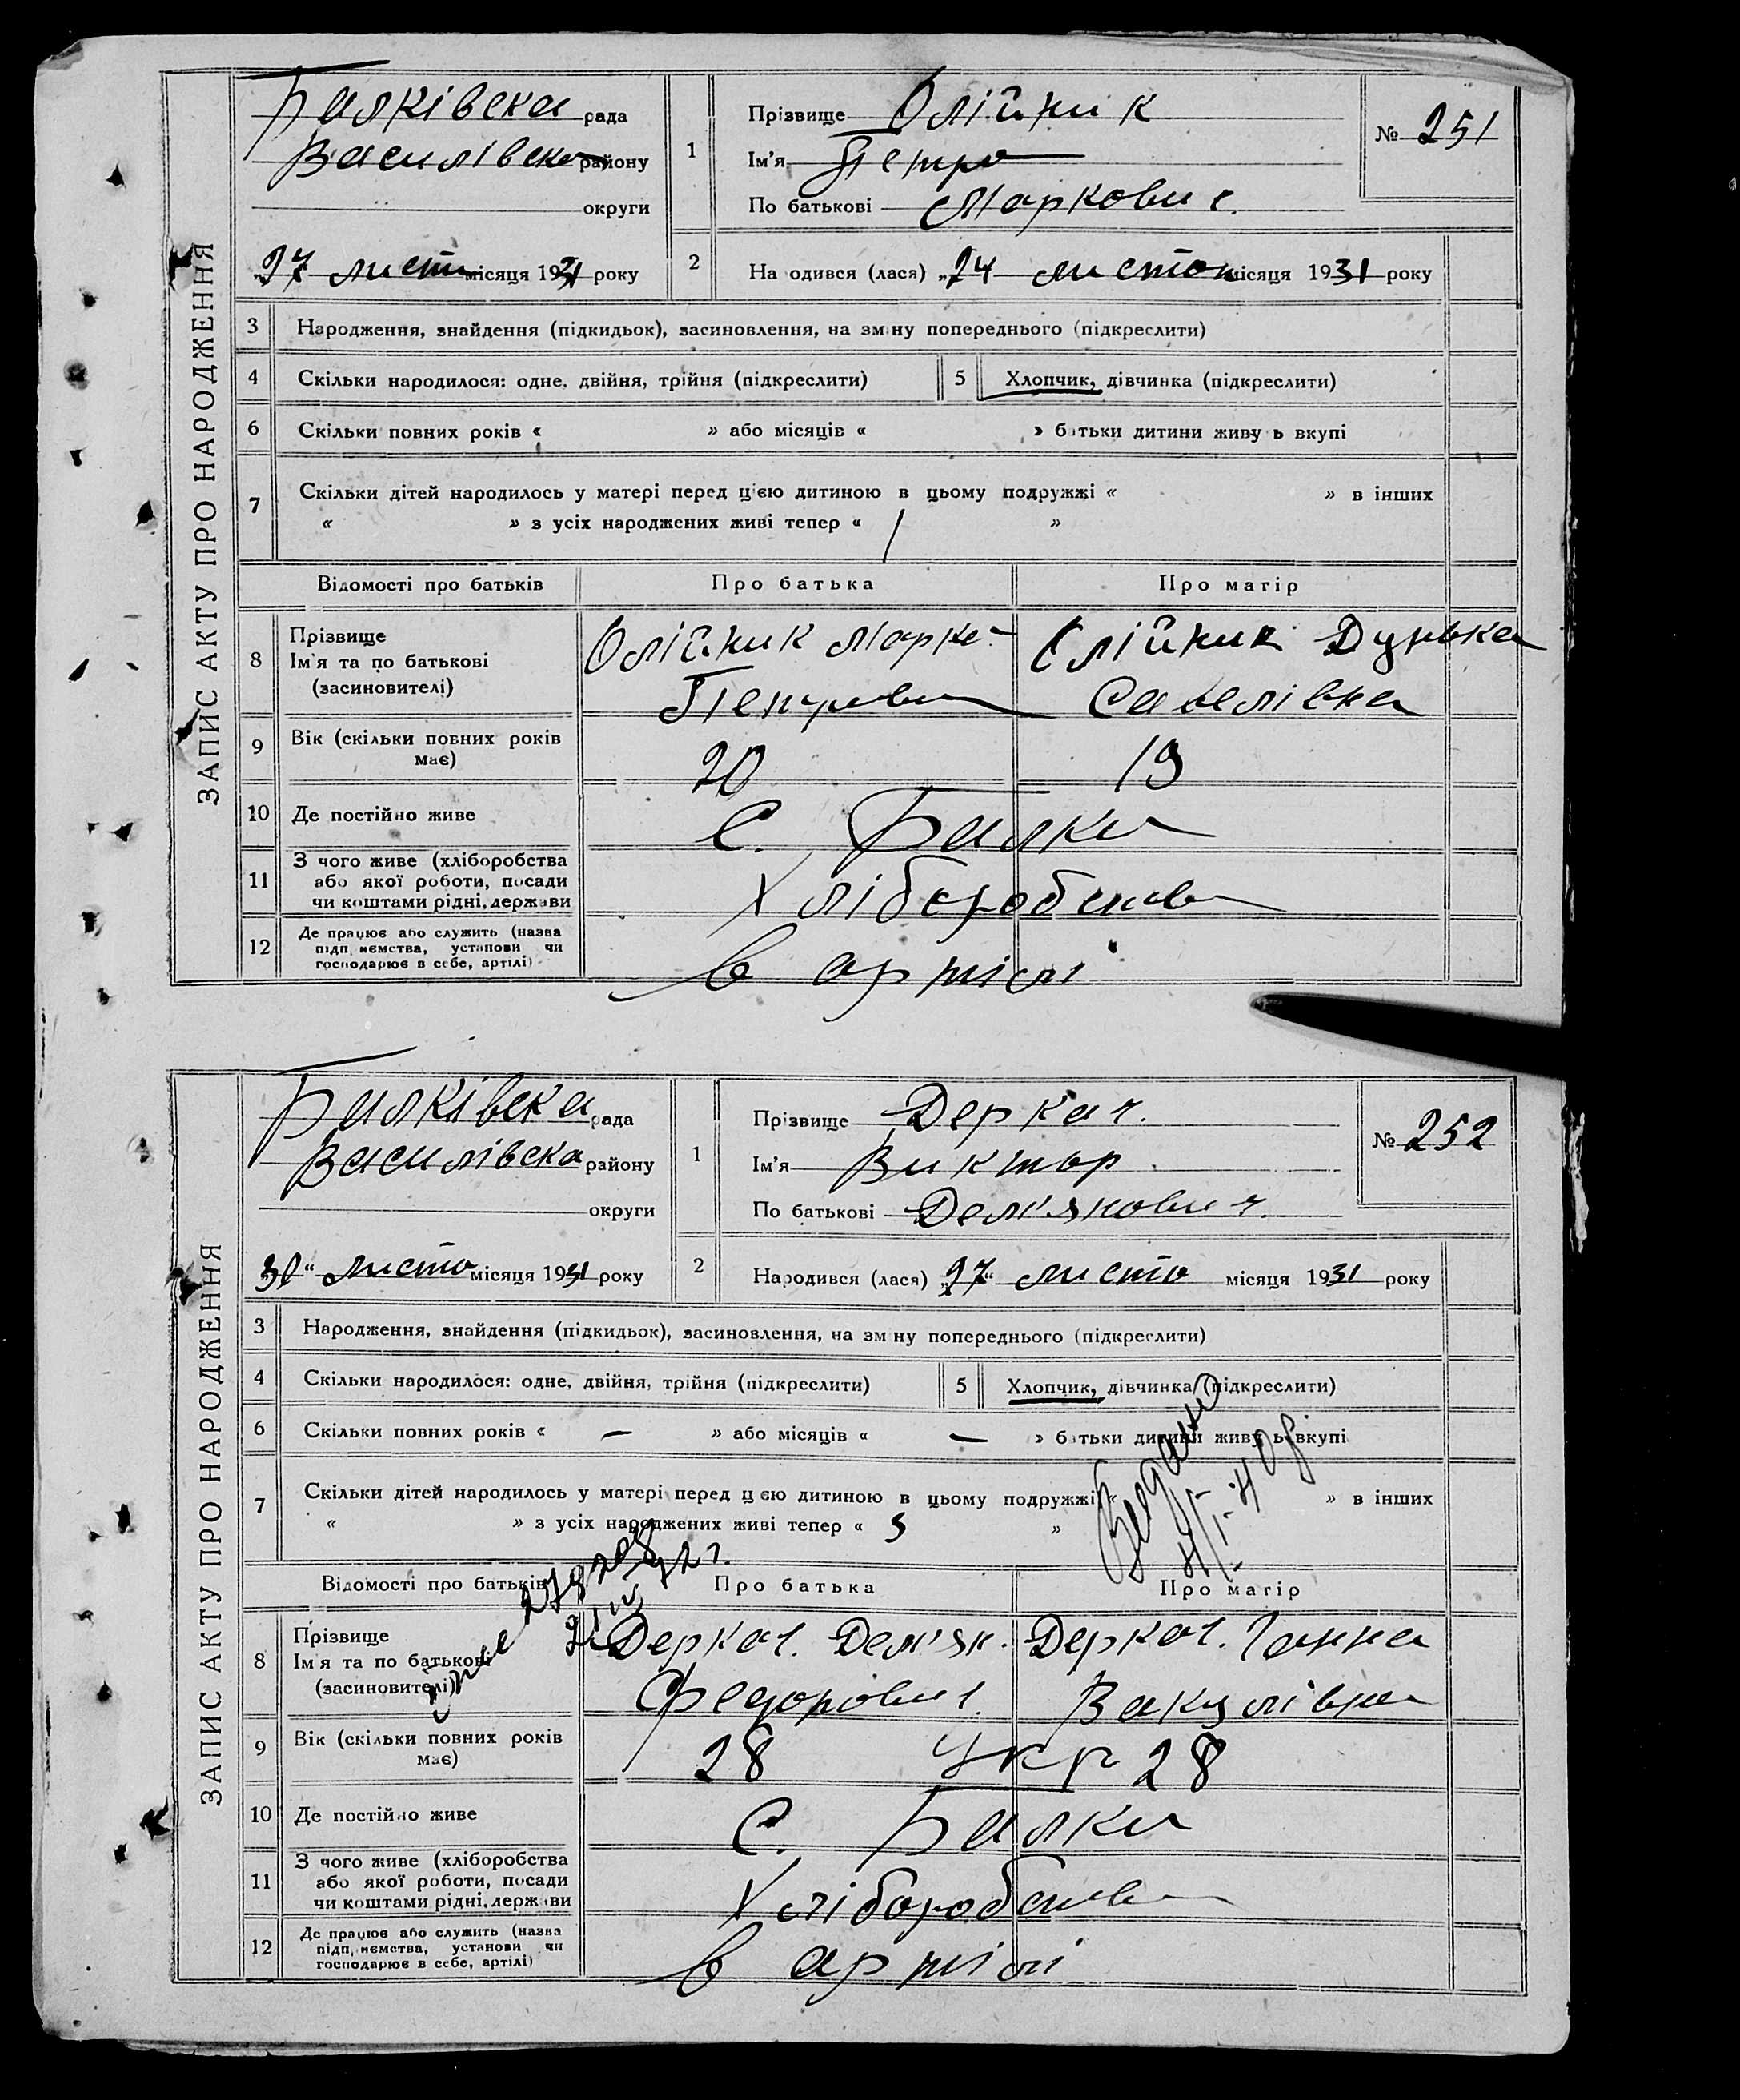 ЗАПИС АКТУ ПРО НАРОДЖЕННЯ
Балківська рада
Василівська району
округи
"27 листо місяця 1931 року
1
Прізвище Олійник
Ім'я Петро
По батькові Маркович.
№ 251
2
На одився (лася) „24 листоп місяця 1931 року
3 Народження, знайдення (підкидьок), засиновлення, на зм ну попереднього (підкреслити)
4 Скільки народилося: одне, двійня, трійня (підкреслити)
5 Хлопчик, дівчинка (підкреслити)
6 Скільки повних років « » або місяців « » батьки дитини живу ь вкупі
7 Скільки дітей народилось у матері перед цією дитиною в цьому подружжі « » в інших
« » з усіх народжених живі тепер « 1 »
Відомості про батьків Про батька Про матір
8 Прізвище
Ім'я та по батькові
(засиновителі)
Олійник Марко
Петрович
Олійник Дунька
Савелівна
9 Вік (скільки повних років
має)
20 19
10 Де постійно живе С. Балки
11 З чого живе (хліборобства
або якої роботи, посади
чи коштами рідні, держави
Хліборобство
12 Де працює або служить (назва
підп иємства, установи чи
господарює в себе, артілі)
в артілі
ЗАПИС АКТУ ПРО НАРОДЖЕННЯ
Балківська рада
Василівська району
округи
30" листо місяця 1931 року
1
Прізвище Деркач.
Ім'я Виктор
По батькові Дем'янович
№ 252
2
Народився (лася) „27" листо місяця 1931 року
3 Народження, знайдення (підкидьок), засиновлення, на зм ну попереднього (підкреслити)
4 Скільки народилося: одне, двійня, трійня (підкреслити)
5 Хлопчик, дівчинка (підкреслити)
6 Скільки повних років « — » або місяців « — » батьки дитини живу ь вкупі
7 Скільки дітей народилось у матері перед ц єю дитиною в цьому подружжі « » в інших
« » з усіх народжених живі тепер « 5 »
Відомості про батьків Про батька Про матір
8 Прізвище
Ім'я та по батькові
(засиновителі)
Деркач. Дем'ян.
Федорович.
Деркач. Ганна
Вакулівна
9 Вік (скільки повних років
має)
28 укр 28
10 Де постійно живе С. Балки
11 З чого живе (хліборобства
або якої роботи, посади
чи коштами рідні, держави
Хліборобство
12 Де працює або служить (назва
підп иємства, установи чи
господарює в себе, артілі)
в артілі